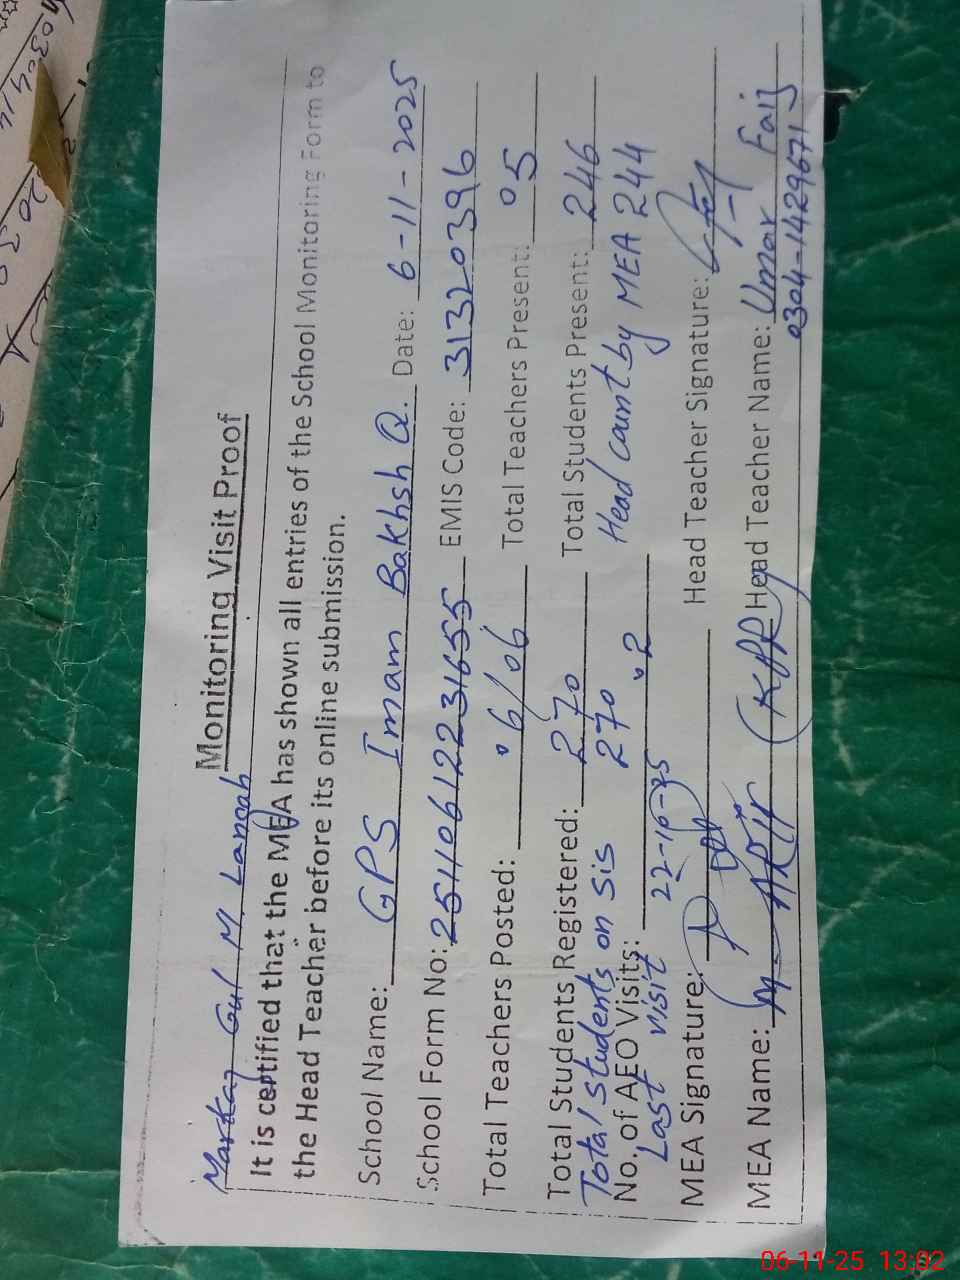 Monitoring Visit Proof
Markaz Gul M. Langah
It is certified that the MEA has shown all entries of the School Monitoring Form to
the Head Teacher before its online submission.
School Name: GPS Imam Bakhsh Q. Date: 6-11-2025
School Form No: 25110612231655 EMIS Code: 31320396
Total Teachers Posted: 06/06 Total Teachers Present: 05
Total Students Registered: 270 Total Students Present: 246
Total students on sis 270 Head count by MEA 244
No. of AEO Visits: 02
Last visit 22-10-25
MEA Signature: Head Teacher Signature:
MEA Name: M. ARIF (KPR) Head Teacher Name: Umar Faiz
0304-1429671
06-11-25 13:02